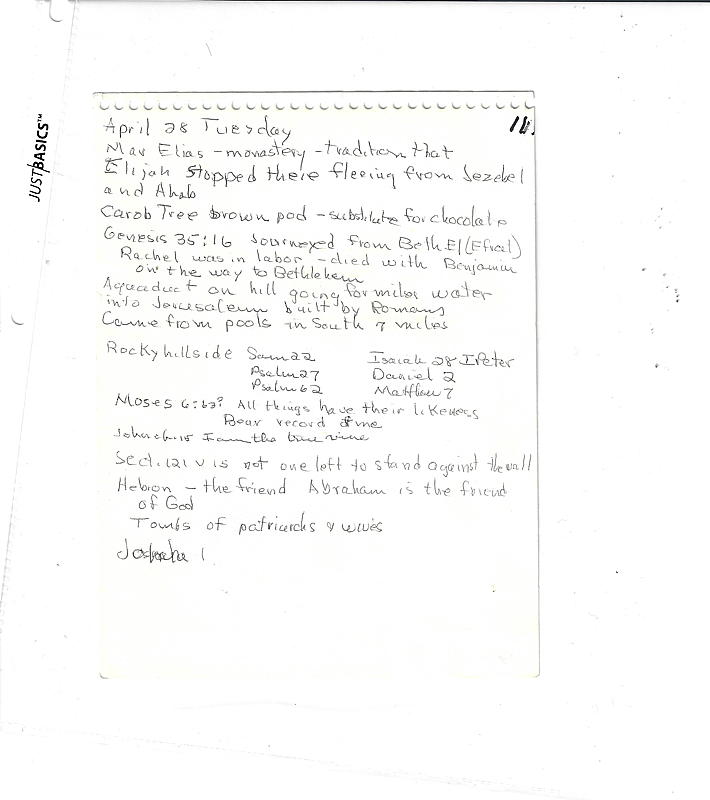 JUST BASICS™
11.
April 28 Tuesday
Mar Elias - monastery - tradition that
Elijah stopped there fleeing from Jezebel
and Ahab
Carob Tree brown pod - substitute for chocolate
Genesis 35:16 Journeyed from Beth El (Efrat)
Rachel was in labor - died with Benjamin
on the way to Bethlehem
Aquaduct on hill going for miles water
into Jerusalem built by Romans
Came from pools in South 7 miles
Rocky hillside Sam 22 Isaiah 28 I Peter
Psalm 27 Daniel 2
Psalm 62 Matthew 7
Moses 6:63? All things have their likeness
Bear record of me
John I am the true vine
Sect. 121 v 15 not one left to stand against the wall
Hebron - the friend Abraham is the friend
of God
Tombs of patriarchs & wives
1